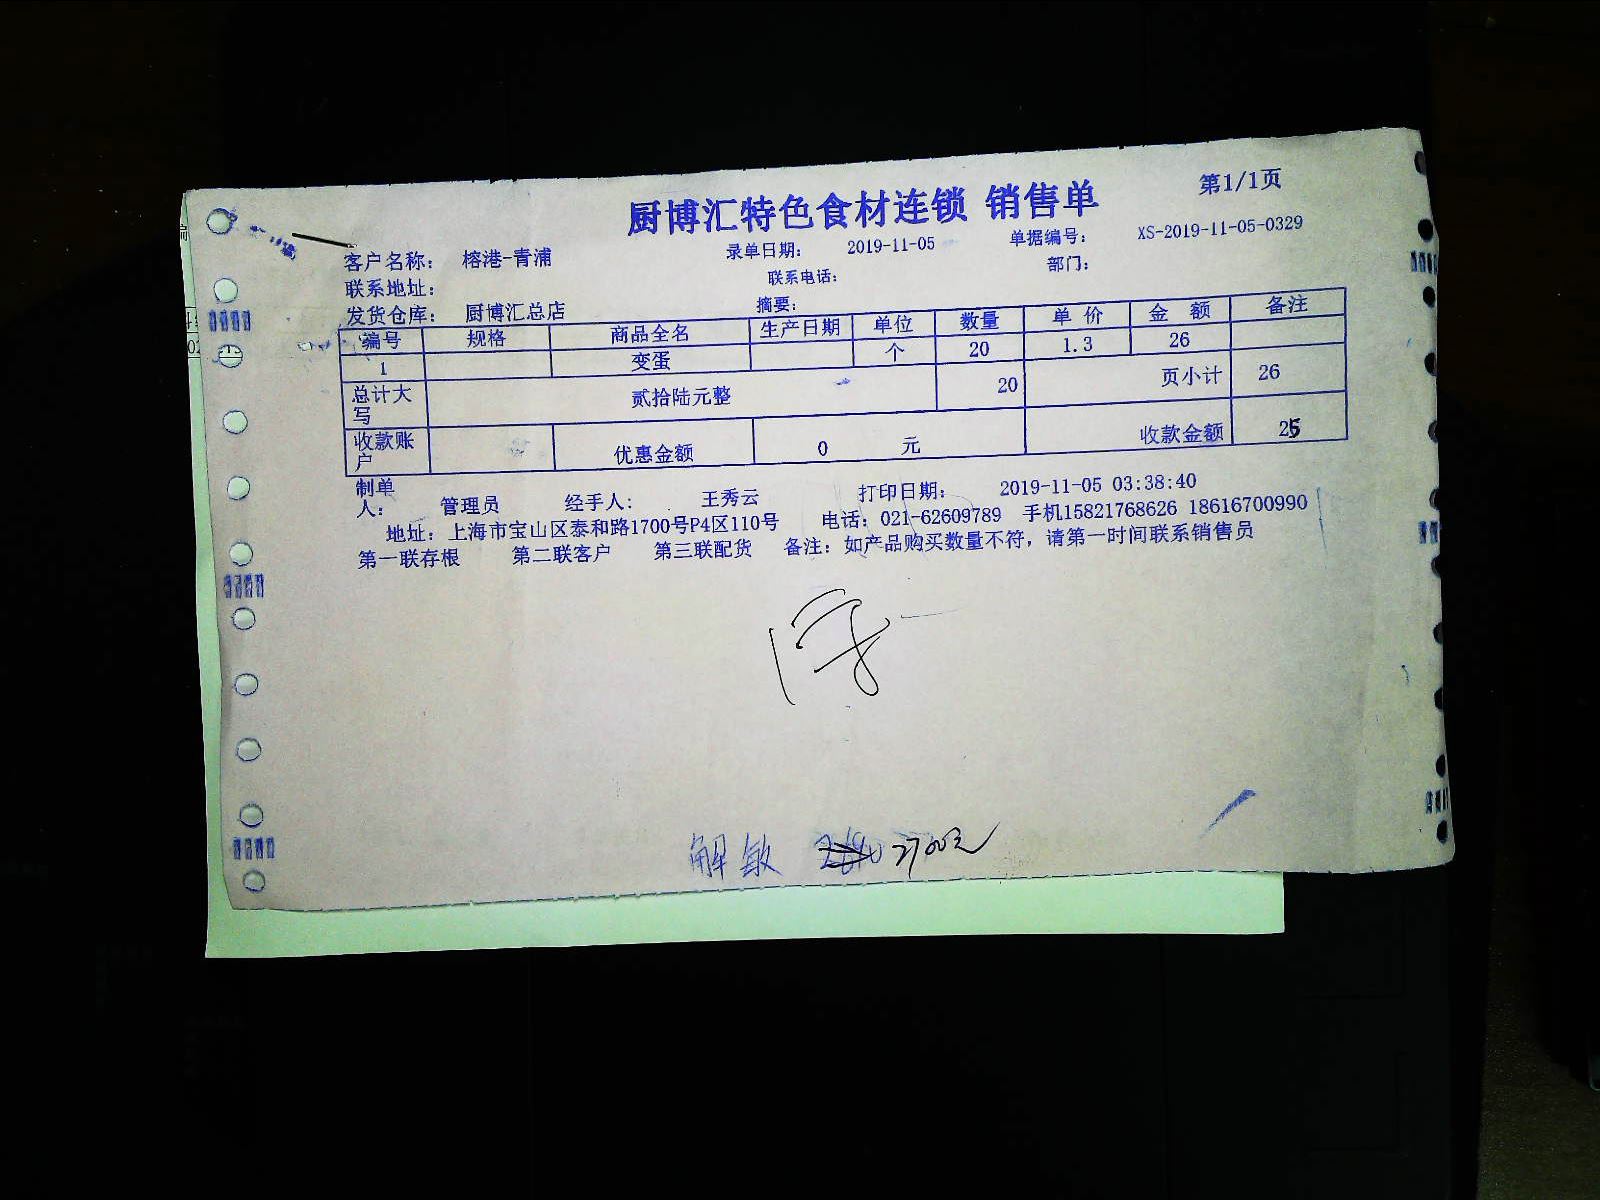 厨博汇特色食材连锁 销售单 第1/1页
客户名称: 榕港-青浦 录单日期: 2019-11-05 单据编号: XS-2019-11-05-0329
联系地址: 联系电话: 部门:
发货仓库: 厨博汇总店 摘要:
编号 规格 商品全名 生产日期 单位 数量 单价 金额 备注
1 变蛋 个 20 1.3 26
总计大写 贰拾陆元整 20 页小计 26
收款账户 优惠金额 0 元 收款金额 25
制单人: 管理员 经手人: 王秀云 打印日期: 2019-11-05 03:38:40
地址: 上海市宝山区泰和路1700号P4区110号 电话: 021-62609789 手机15821768626 18616700990
第一联存根 第二联客户 第三联配货 备注: 如产品购买数量不符, 请第一时间联系销售员
解敏 2700元